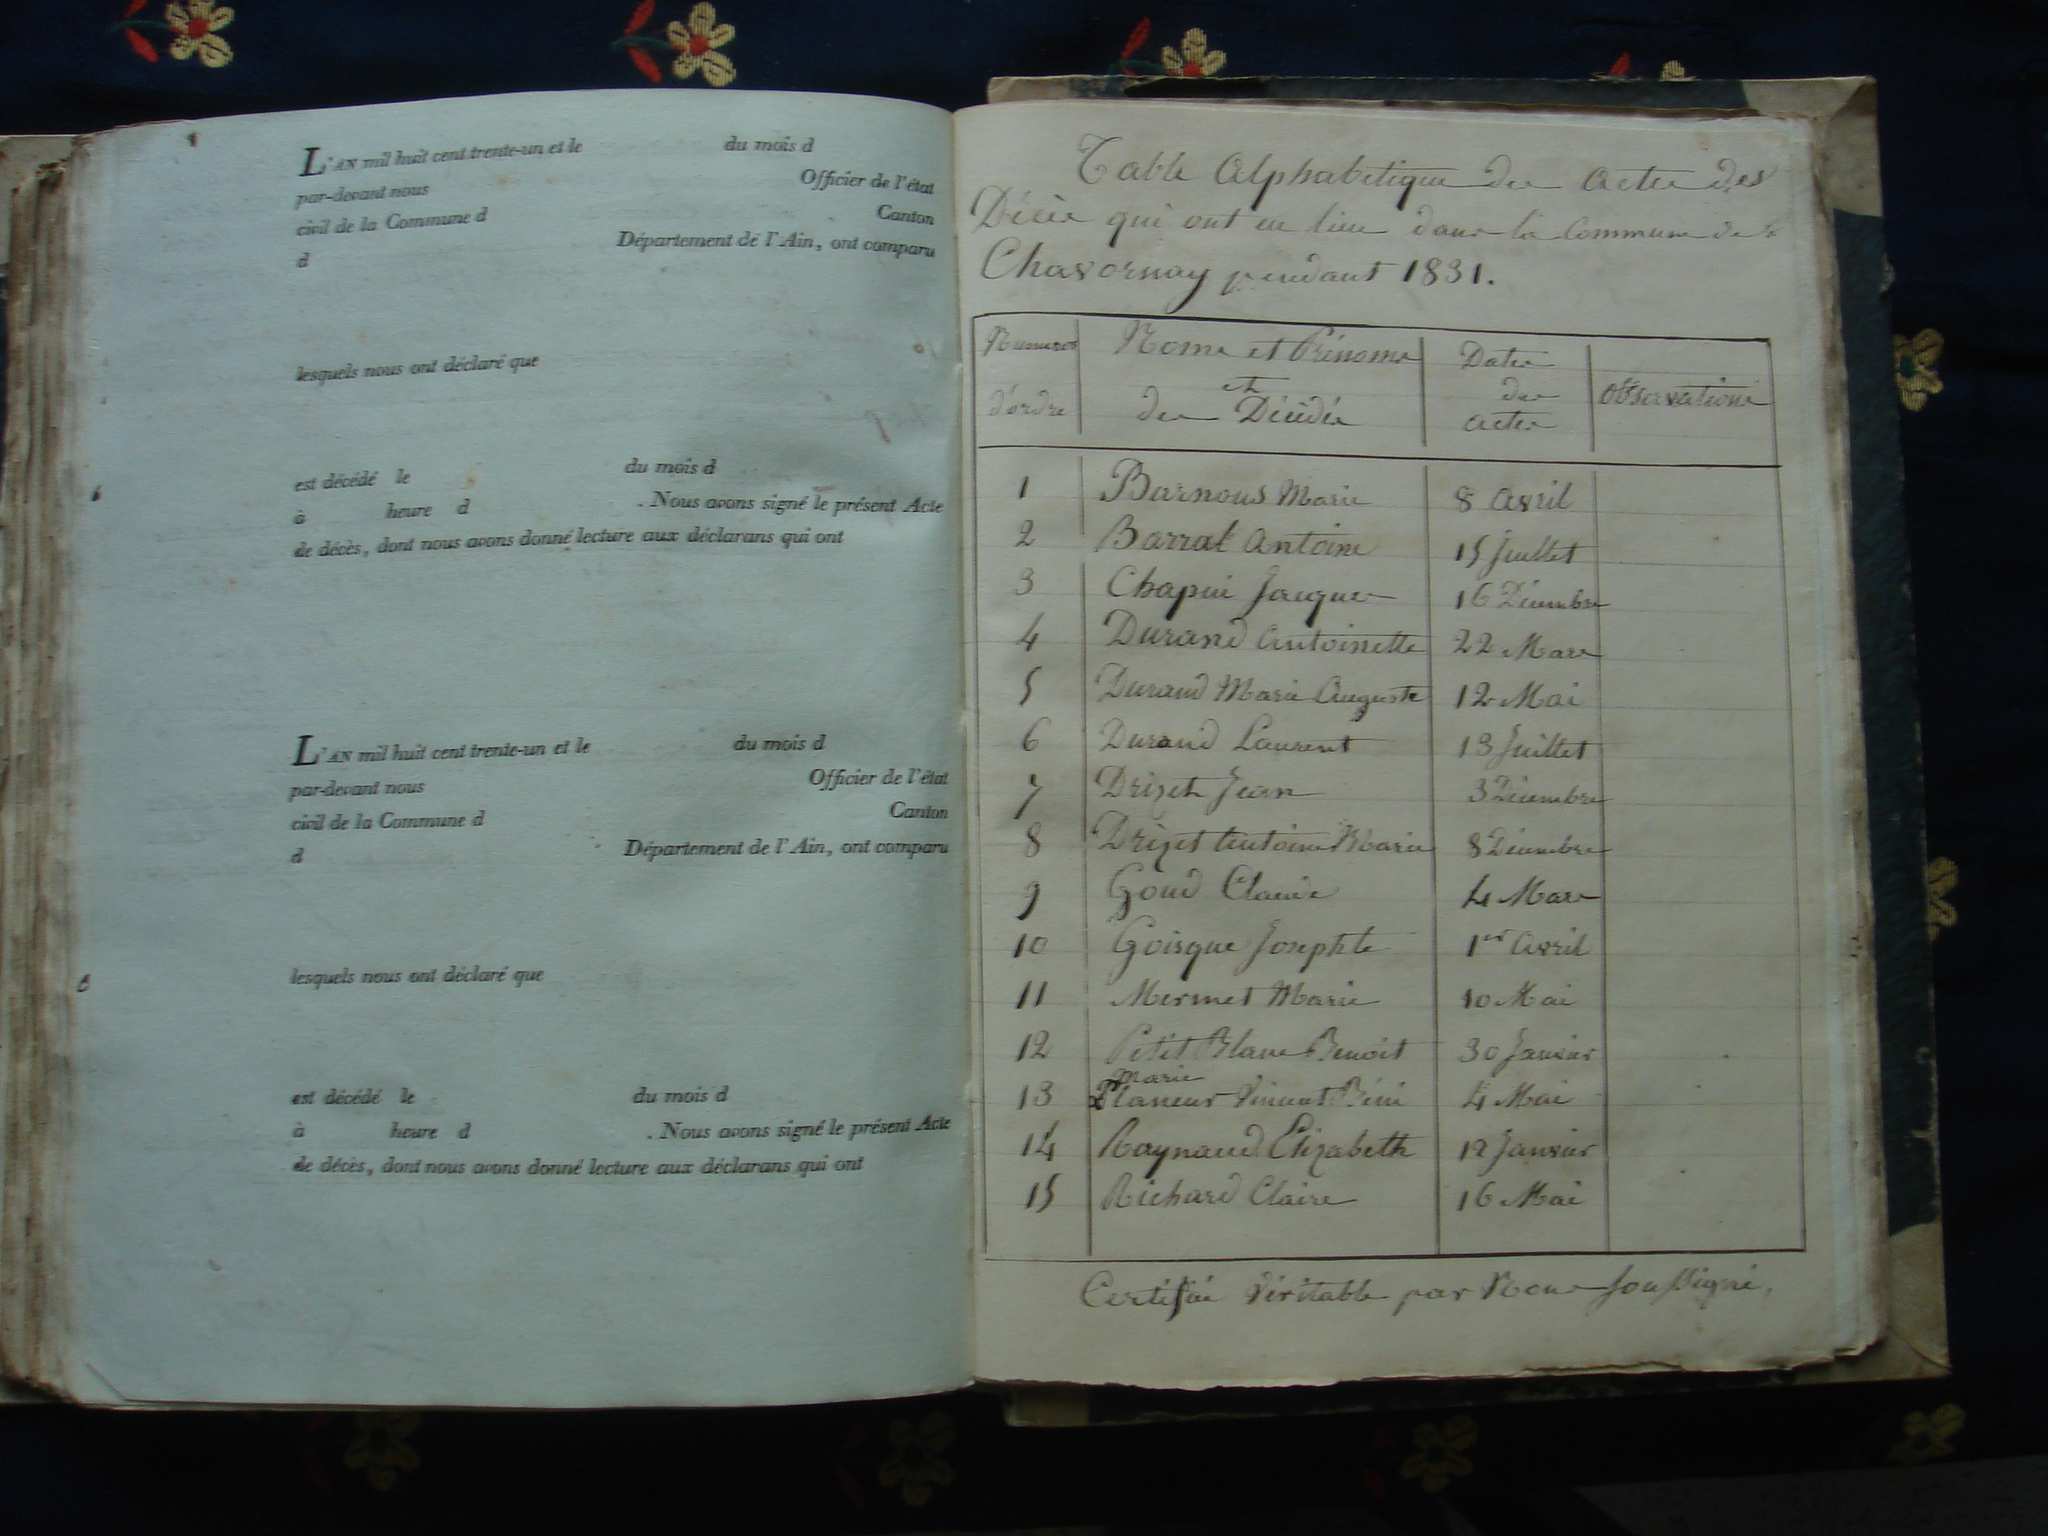 L'AN mil huit cent trente-un et le du mois d
par-devant nous Officier de l'état
civil de la Commune d Canton
d Département de l'Ain, ont comparu
lesquels nous ont déclaré que
est décédé le du mois d
à heure d . Nous avons signé le présent Acte
de décès, dont nous avons donné lecture aux déclarans qui ont
L'AN mil huit cent trente-un et le du mois d
par-devant nous Officier de l'état
civil de la Commune d Canton
d Département de l'Ain, ont comparu
lesquels nous ont déclaré que
est décédé le du mois d
à heure d . Nous avons signé le présent Acte
de décès, dont nous avons donné lecture aux déclarans qui ont
Table Alphabétique des actes des
Décès qui ont eu lieu dans la Commune de
Chavornay pendant 1831.
Numéros d'ordre
Noms et Prénoms
des Décédés
Dates
des
actes
Observations
1 Barnous Marie 8 avril
2 Barral Antoine 15 Juillet
3 Chapuis Jacques 16 Décembre
4 Durand Antoinette 22 Mars
5 Durand Marie Auguste 12 Mai
6 Durand Laurent 13 Juillet
7 Drizet Jean 3 Décembre
8 Drizet Antoine Marie 8 Décembre
9 Goud Claude 4 Mars
10 Goisque Josephte 1er avril
11 Mermet Marie 10 Mai
12 Petit Blanc Benoit 30 Janvier
Marie
13 Vincent 4 Mai
14 Raynaud Elizabeth 12 Janvier
15 Richard Claire 16 Mai
Certifié Véritable par Nous Soussigné,